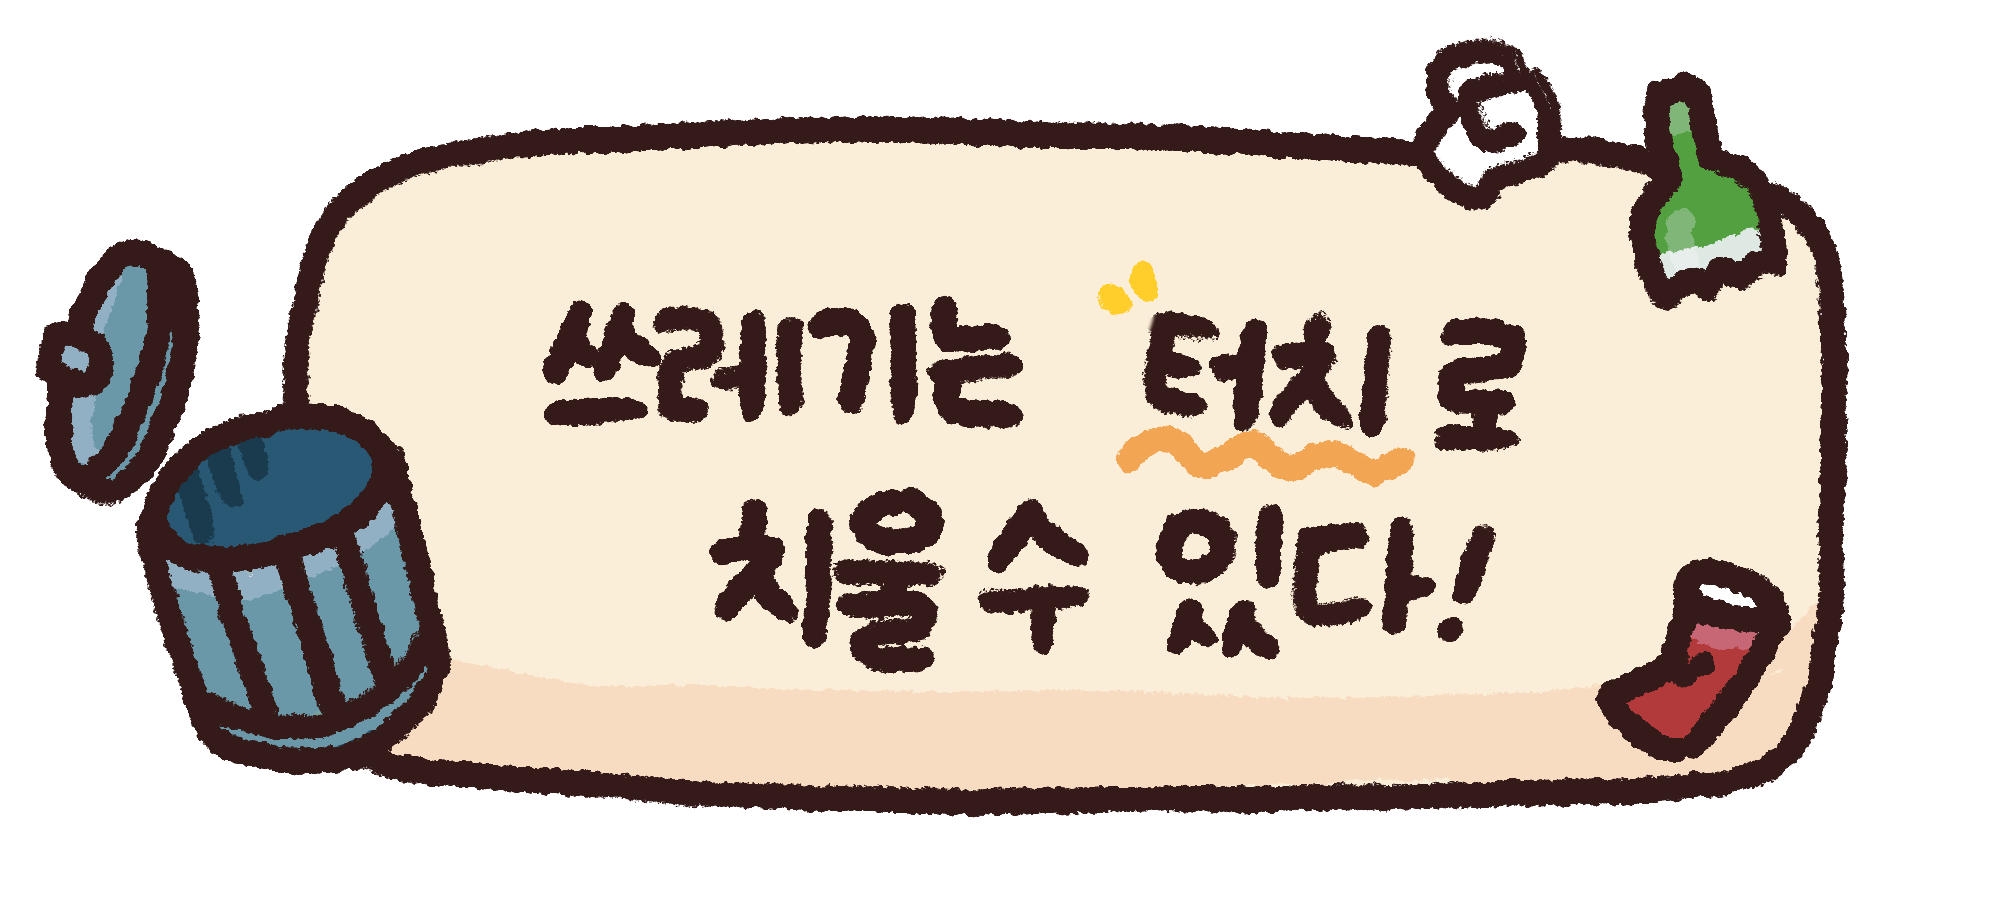 쓰레기는 터치로
치울 수 있다!